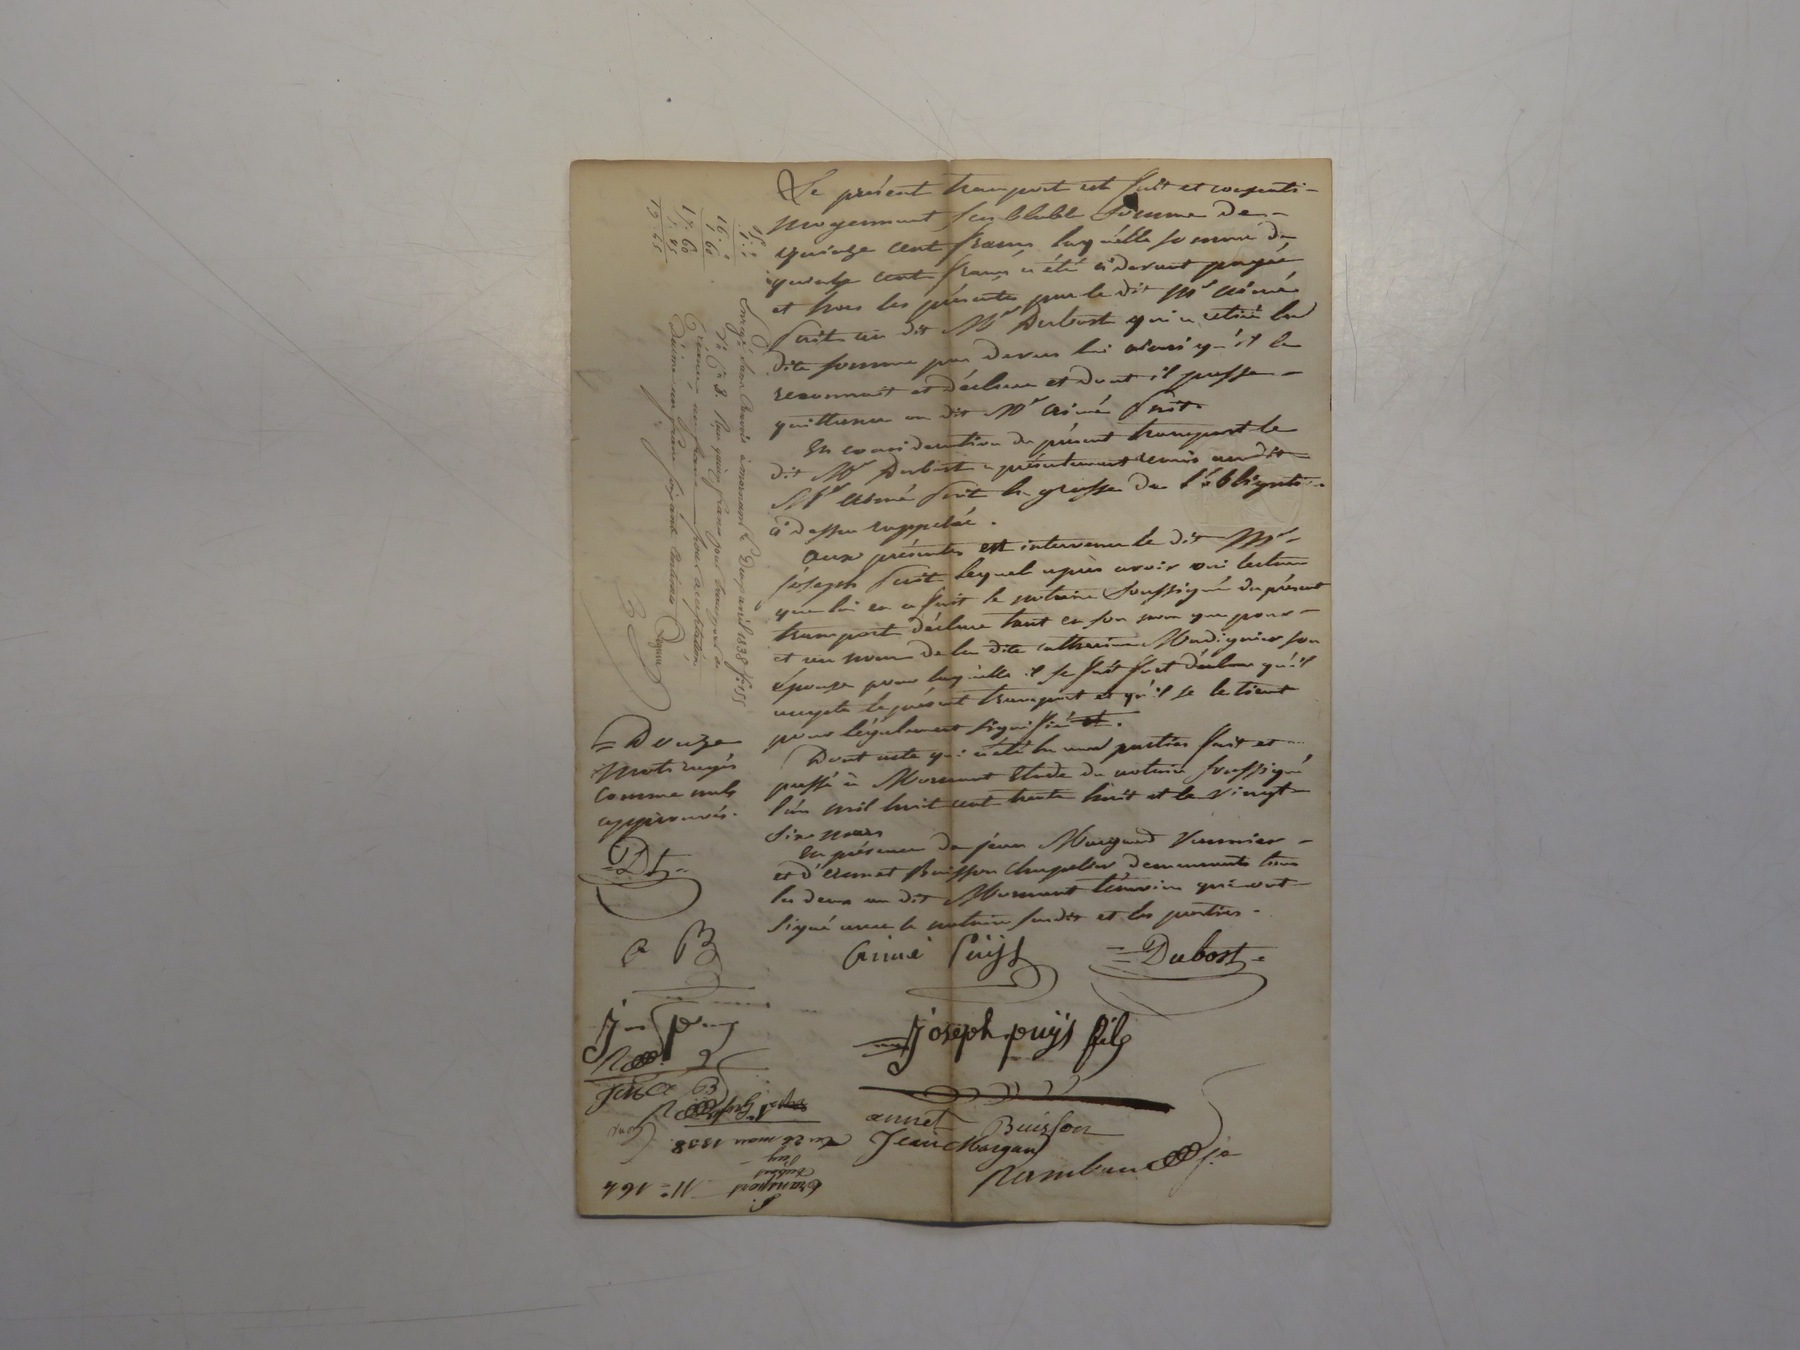 Le présent transport est fait et consenti
moyennant semblable somme de
quinze cent francs laquelle somme de
quinze cent francs a été ci devant payée
et hors les présentes par le dit Mr aimé
Puit au dit Mr Dubost qui a retiré la
dite somme par devers lui ainsi qu'il le
reconnait et déclare et dont il passe
quittance au dit Mr aimé Puit.
En considération du présent transport le
dit Mr Dubost a présentement remis audit
Mr aimé Puit la grosse de l'obligation
ci dessus rappelée.
Aux présentes est intervenu le dit Mr
joseph Puit lequel après avoir oui lecture
que lui en a fait le notaire soussigné du présent
transport déclare tant en son nom que pour
et au nom de la dite catherine son
épouse pour laquelle il se fait fort déclare qu'il
accepte le présent transport et qu'il se le tient
pour légalement signifié et.
Dont acte qui a été lu aux parties fait et
passé à Mornant étude du notaire soussigné
l'an mil huit cent trente huit et le vingt
six mars
En présence de jean Margand
et d'annet Buisson chapelier demeurants tous
les deux au dit Mornant témoins qui ont
signé avec le notaire susdit et les parties.
aimé Puijt =Dubost=
joseph puijs fils
annet Buisson
Jean Margan
=Douze
mots rayés
comme nuls
approuvés.
=Dt=
a B
J M
15
16.
1 60
17.60
1.85
19.45
à mornant le Deux avril 1838 fo 55
Vo Co 3. Reçu quinze francs pour transport
un franc pour acceptation
Décime un franc soixante centimes
No 164
transport
Dubost
Puy
du 26 mars 1838